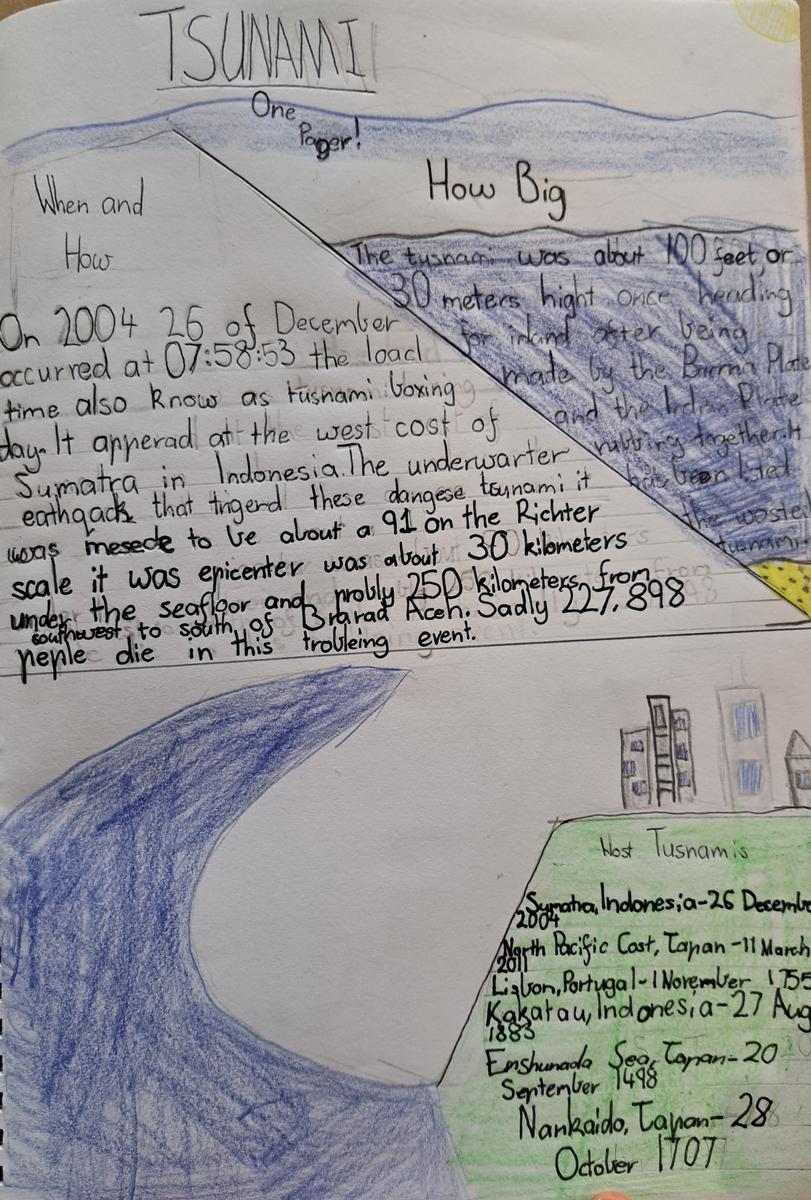 TSUNAMI
One
Pager!
When and
How
On 2004 26 of December
occurred at 07:58:53 the loacl
time also know as tusnami boxing
day. It apperad at the west cost of
Sumatra in Indonesia. The underwarter
eathqack that trigerd these dangese tsunami it
was mesede to be about a 91 on the Richter
scale it was epicenter was about 30 kilometers
under the seafloor and probly 250 kilometers from
southwest to south of Brarad Aceh. Sadly 227,898
peple die in this trobleing event.
How Big
The tusnami was about 100 feet, or
30 meters hight once heading
for inland after being
made by the Burma Plate
and the Indian Plate
rubbing together. It
has been listed
the wostet
tusnami
Wost Tusnamis
Sumatra, Indonesia-26 Decembe
2004
North Pacific Cost, Japan -11 March
2011
Lisbon, Portugal-1 November 1755
Kakatau, Indonesia-27 Aug
1883
Enshunada Sea, Japan-20
September 1498
Nankaido, Japan-28
October 1707